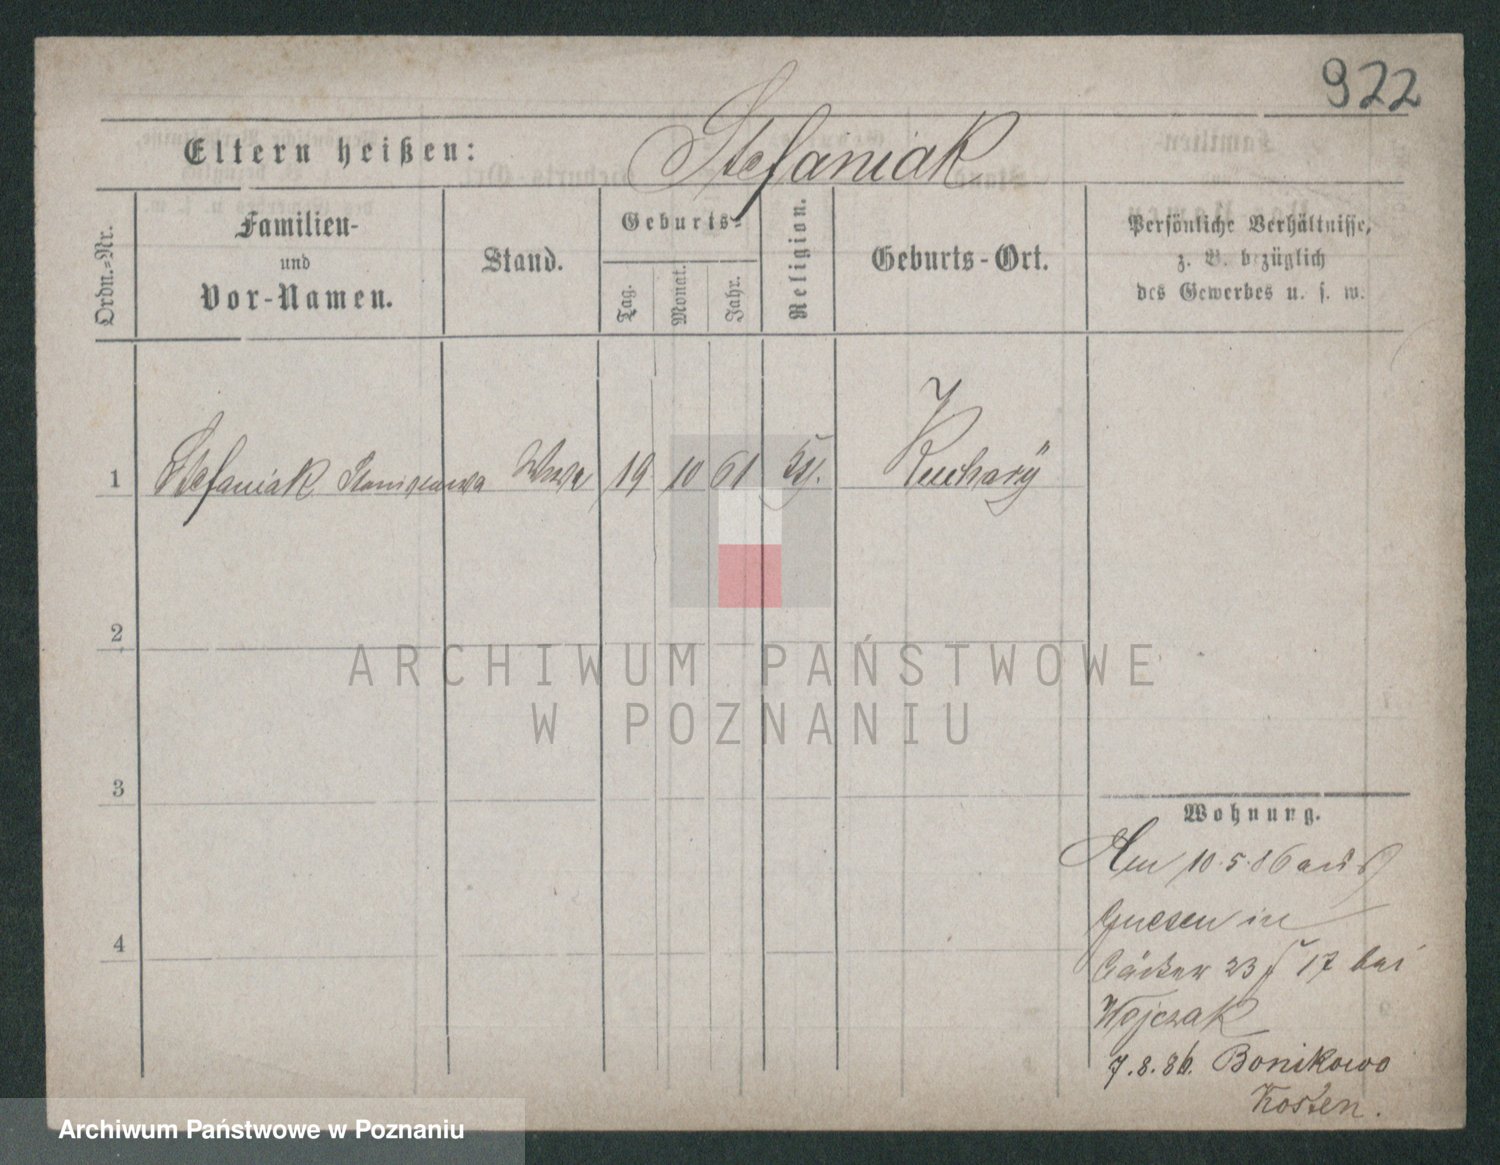 922
Eltern heißen: Stefaniak
Ordn.-Nr.
Familien-
und
Vor-Namen.
Stand.
Geburts-
Tag.
Monat.
Jahr.
Religion.
Geburts-Ort.
Persönliche Verhältnisse,
z. B. bezüglich
des Gewerbes u. s. w.
1 Stefaniak Stanislawa 19 10 61 Kucharÿ
2
ARCHIWUM PAŃSTWOWE
W POZNANIU
3
4
Wohnung.
Am 10.5.86 aus
Gnesen in
23 17 bei
Wojczak
7.8.86. Bonikowo
Kosten.
Archiwum Państwowe w Poznaniu